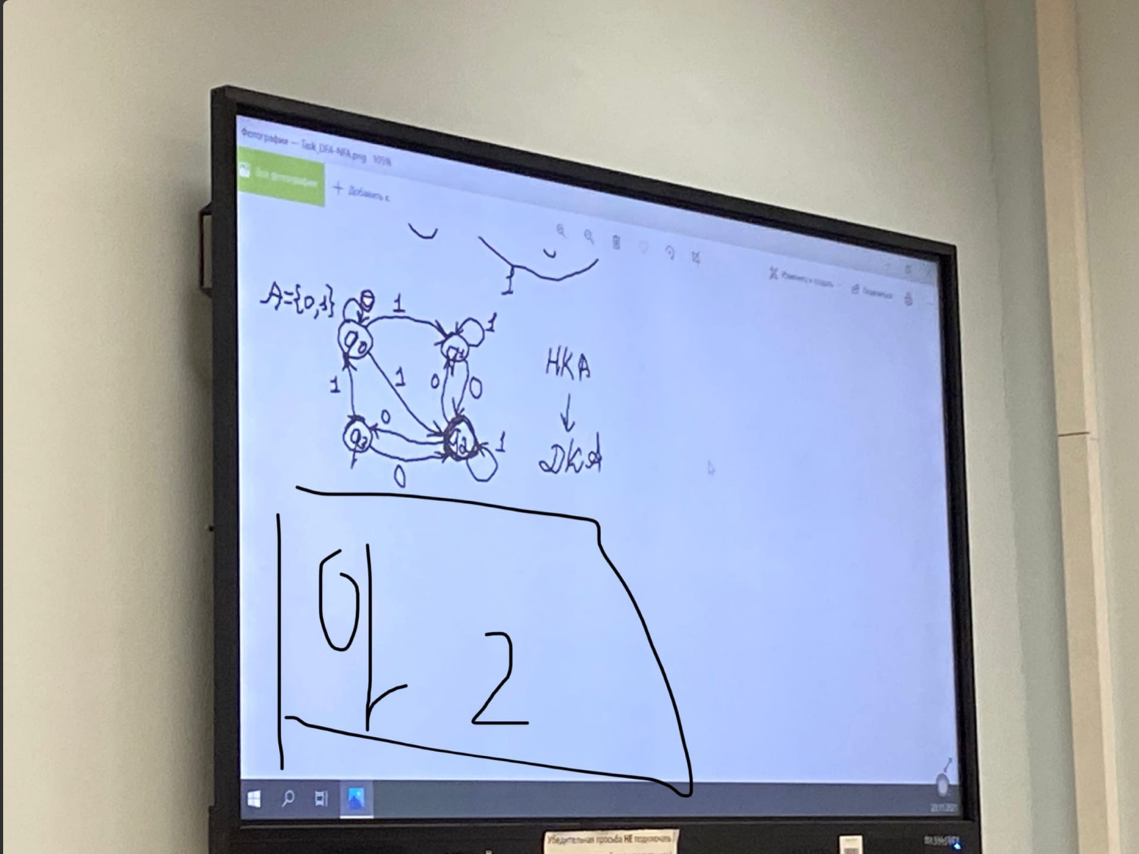 Фотографии — Task_DFA-NFA.png 105%
Все фотографии
+ Добавить к
Изменить и создать
Поделиться
1
A={0,1}
0
1
1
q0
q1
НКА
1
1
0
0
↓
0
q3
q2
1
ДКА
0
0
2
23.11.2021
Убедительная просьба НЕ подключать